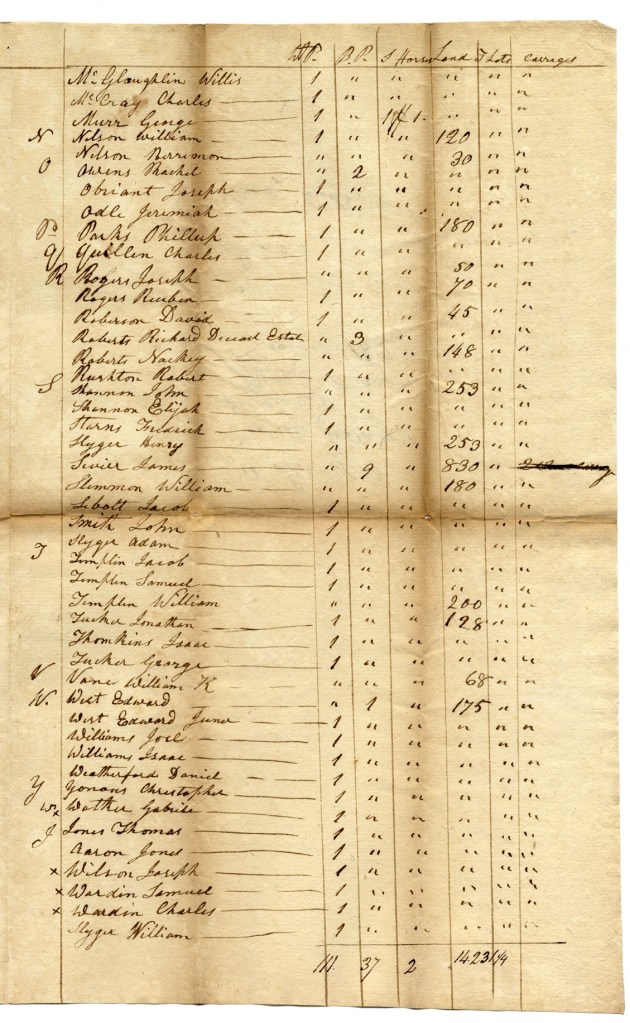 W P. B. P. S Horse Land T Lots Carreges
Mc Gloughlin Willis 1 " " " " "
Mc Cray Charles 1 " " " " "
Murr George 1 " 1 " " "
N Nilson William 1 " " 120 " "
Nilson Berrimon " " " 30 " "
O Owens Rachel " 2 " " " "
Obriant Joseph 1 " " " " "
Odle Jeremiah 1 " " " " "
P Parks Phillip 1 " " 180 " "
Q Quillen Charles 1 " " " " "
R Rogers Joseph " " " 50 " "
Rogers Reuben 1 " " 70 " "
Roberson David 1 " " 45 " "
Roberts Richard Deceast Estate " 3 " " " "
Roberts Nackey " " " 148 " "
Rushton Robert 1 " " " " "
S Shannon John " " " 253 " "
Shannon Elijah 1 " " " " "
Starns Fredrick 1 " " " " "
Slyger Henry " " " 253 " "
Sevier James " 9 " 830 "
Slemmon William " " " 180 " "
Sebolt Jacob 1 " " " " "
Smith John 1 " " " " "
Slyger Adam 1 " " " " "
T Templin Jacob 1 " " " " "
Templin Samuel 1 " " " " "
Templin William " " " 200 " "
Tucker Jonathan 1 " " 128 " "
Thomkins Isaac 1 " " " " "
Tucker George 1 " " " " "
V Vance William K " " " 68 " "
W. West Edward " 1 " 175 " "
West Edward Juner 1 " " " " "
Williams Joel 1 " " " " "
Williams Isaac 1 " " " " "
Weatherford Daniel 1 " " " " "
Y Yonans Christopher 1 " " " " "
W x Wather Gabriel 1 " " " " "
J Jones Thomas 1 " " " " "
Aaron Jones 1 " " " " "
x Wilson Joseph 1 " " " " "
x Wardin Samuel 1 " " " " "
x Wardin Charles 1 " " " " "
Slyger William 1 " " " " "
111. 37 2 14.231/4